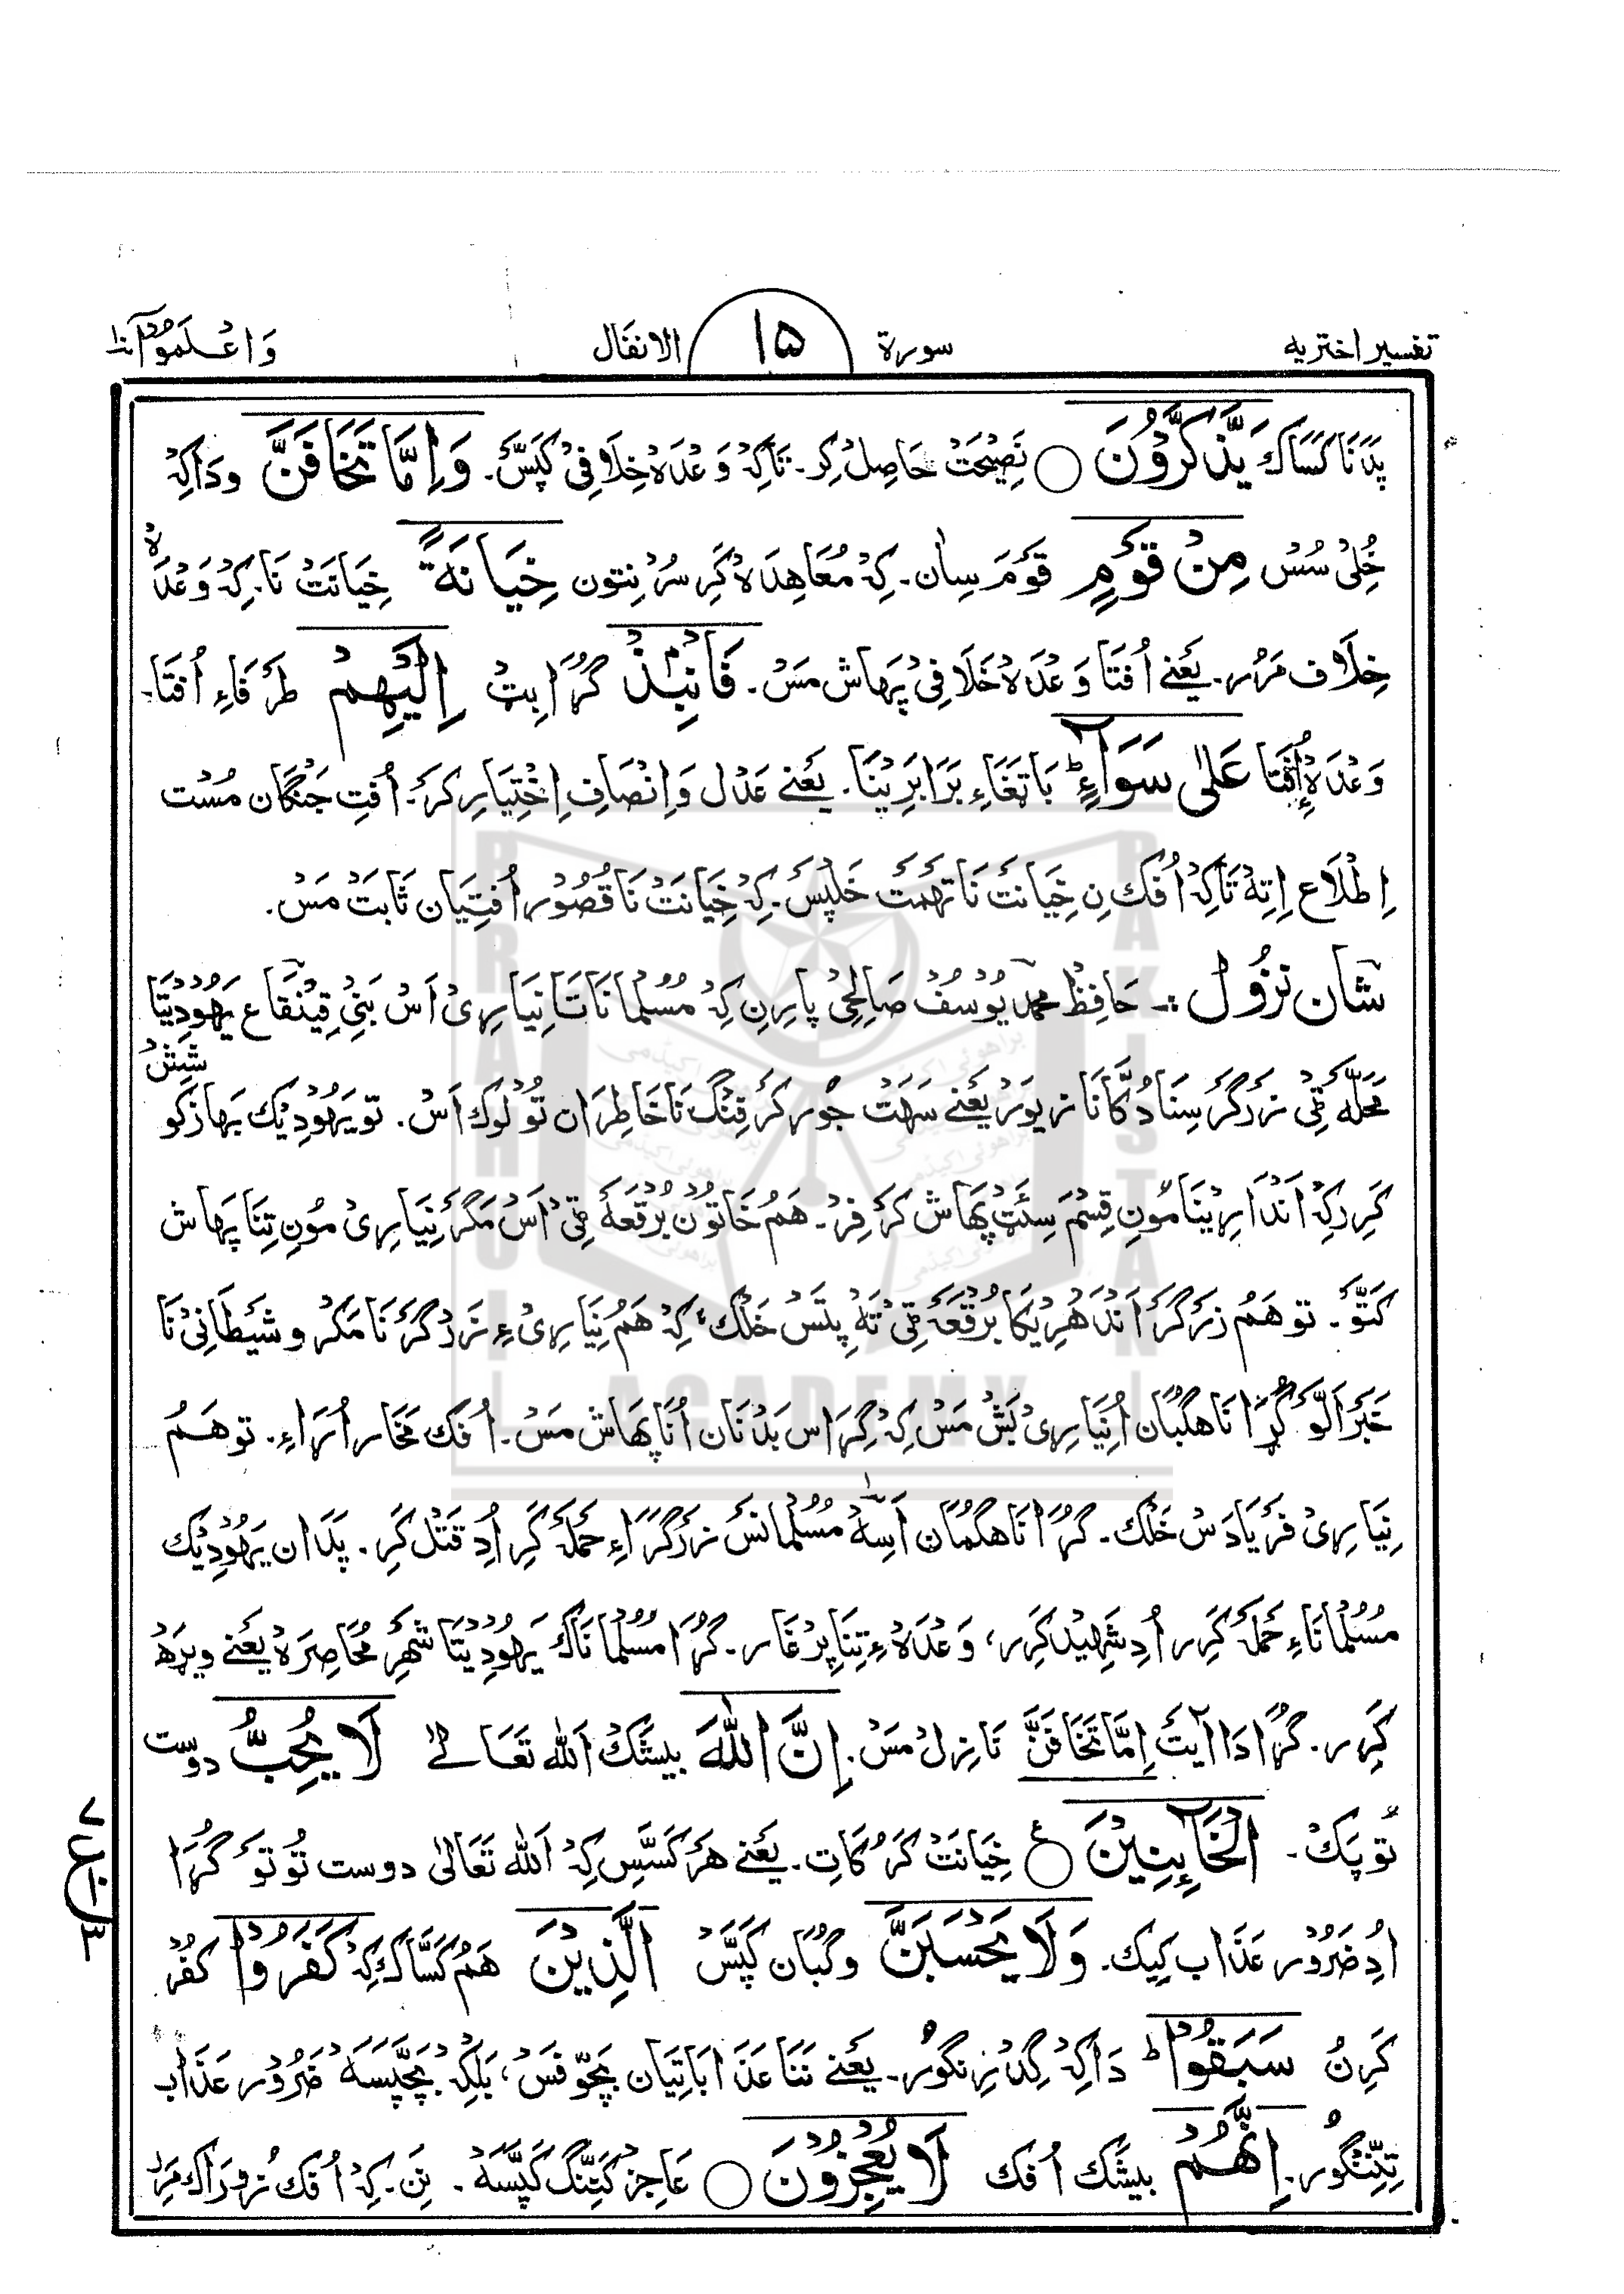 تفسیر اختریه سورة ۱۵ الانفال وَاعْلَمُوْۤا ۱۰
پَدَنَا کَسَّاک یَذَّکَّرُوْنَ ○ نَصِیْحَتْ حَاصِلْ کِر۔ تَاکِہْ وَعْدَہ خِلَافِیْ کَپَسَّ۔ وَاِمَّا تَخَافَنَّ وَدَاکِہْ
خُلِیْ سُسْ مِنْ قَوْمٍ قَوْمَ سِان۔ کِہْ مُعَاهِدَہ کَرِ سُرْ نِتون خِیَانَةً خِیَانَتْ نَا۔ کِہْ وَعْدَہ
خِلَاف مَرْر۔ یَعْنے اُفتَا وَعْدَہ خَلَافِیْ پَهاش مَسْ۔ فَانْۢبِذْ گُڑَا بِٹ اِلَیْهِمْ طَرَفَاءِ اُفتَا۔
وَعْدَہ اِفتَا عَلٰی سَوَآءٍ ؕ بَاتَغَاءِ بَرَابَرِیْنَا۔ یَعْنے عَدْل وَاِنْصَافِ اِخْتِیَارِ کَرَ۔ اُفتِ جَنگان مُسْت
اِطْلَاع اِتِہْ تَاکِہْ اُفک نِ خِیَانَتْ نَا تِهمَتْ خَلْپَسْ۔ کِہْ خِیَانَتْ نَا قُصُوْر اُفتِیَان ثَابَتْ مَسْ۔
شَان نزُوْل :۔ حَافِظْ محمد یُوْسُفْ صَالِحِیْ پارِنِ کِہْ مُسُلمانَاتَا نِیَارِیْ اَسْ بَنِیْ قِیْنقَاع یَهُوْدِیْتَا
مَحَلَّہ ٹِی زَرگَرَ سِنَا دُکَّانَا زیوَر یَعْنے سَهَتْ جوڑ کَرْ فِنگ نَا خَاطِرَان تُوْلوک اَسْ۔ تو یَهُوْدِیْک بَهاز کو شِشْ
کَرِر کِہْ اَنْدَارِیْنَا مُونِ قِسْمَ سِئَتْ پَهَاش کَرْ فِرْ۔ هَمْ خَاتُوْن بُرْقَعَہ ٹِیْ اَسْ مَگَرْ نِیَارِیْ مُونِ تِنَا پَهاش
کَتَّوْ۔ تو هَمُ زَرگَرْ اَنْدَهرِیْکَا بُرْقَعَہ ٹِیْ تَہِ پِٹَسْ خَلْک کِہْ هَمُ نِیَارِیْ ءِ زَرْگَرْ نَا مَکَر وشَیْطَانِیْ نَا
خَبَرْ اَلَّوْ گُڑَا نَا هِلِّان اُ نِیَارِیْ بَشْ مَسْ کِہْ گِرَاس بَدْنَان اُنَا پَهَاش مَسْ۔ اُفک مَخَار اُرَاءِ۔ تو هَمُ
نِیَارِیْ فَرْیَادَسْ خَلْک۔ گُڑَا نَا هَکُمَان اَسِہْ مُسُلمانَسْ زَرْگَرَاءِ حَمْلَہ کَرِ اُدِ قَتْل کَرِ۔ پَدَان یَهُوْدِیْک
مُسُلمانَاءِ حَمْلَہ کَرِر اُدِ شَهِیْد کَرِر، وَعْدَہ ءِ تِنَا پِرْغَار۔ گُڑَا مُسُلمانَاک یَهُوْدِیْتَا شَهرِ مُحَاصِرَہ یَعْنے ویڑھ
کَرِر۔ گُڑَا دَا آیَتْ اِمَّا تَخَافَنَّ نَازِل مَسْ۔ اِنَّ اللّٰهَ بیشَّک اَللّٰه تَعَالٰے لَا یُحِبُّ دوست
تو پَک۔ الْخَآئِنِیْنَ ○ع خِیَانَتْ کَرُکَاتِ۔ یَعْنے هَرْ کَسَّسِ کِہْ اَللّٰه تَعَالٰی دوست تُوْتَوَ گُڑَا
اُدِ ضَرُوْر عَذَاب کِیْک۔ وَلَا یَحْسَبَنَّ وَگُمَان کَپَسَّ الَّذِیْنَ هَمُ کَسَّاک کِہْ کَفَرُوْا کُفْر
کَرِنُ سَبَقُوْا ؕ دَاکِہْ گِدْرِنگُوْر۔ یَعْنے نَنَا عَذَابَاتِیَان بَچُّوْفَسْ، بَلْکِہْ بَچَّپَسَہ ضَرُوْر عَذَاب
تِنِّنگُور۔ اِنَّهُمْ بیشَّک اُفک لَا یُعْجِزُوْنَ ○ عَاجِز کَتِنگ کَپَّسَہ۔ نِن۔ کِہْ اُفک زورَاک مَرِر
۷
ع
۳